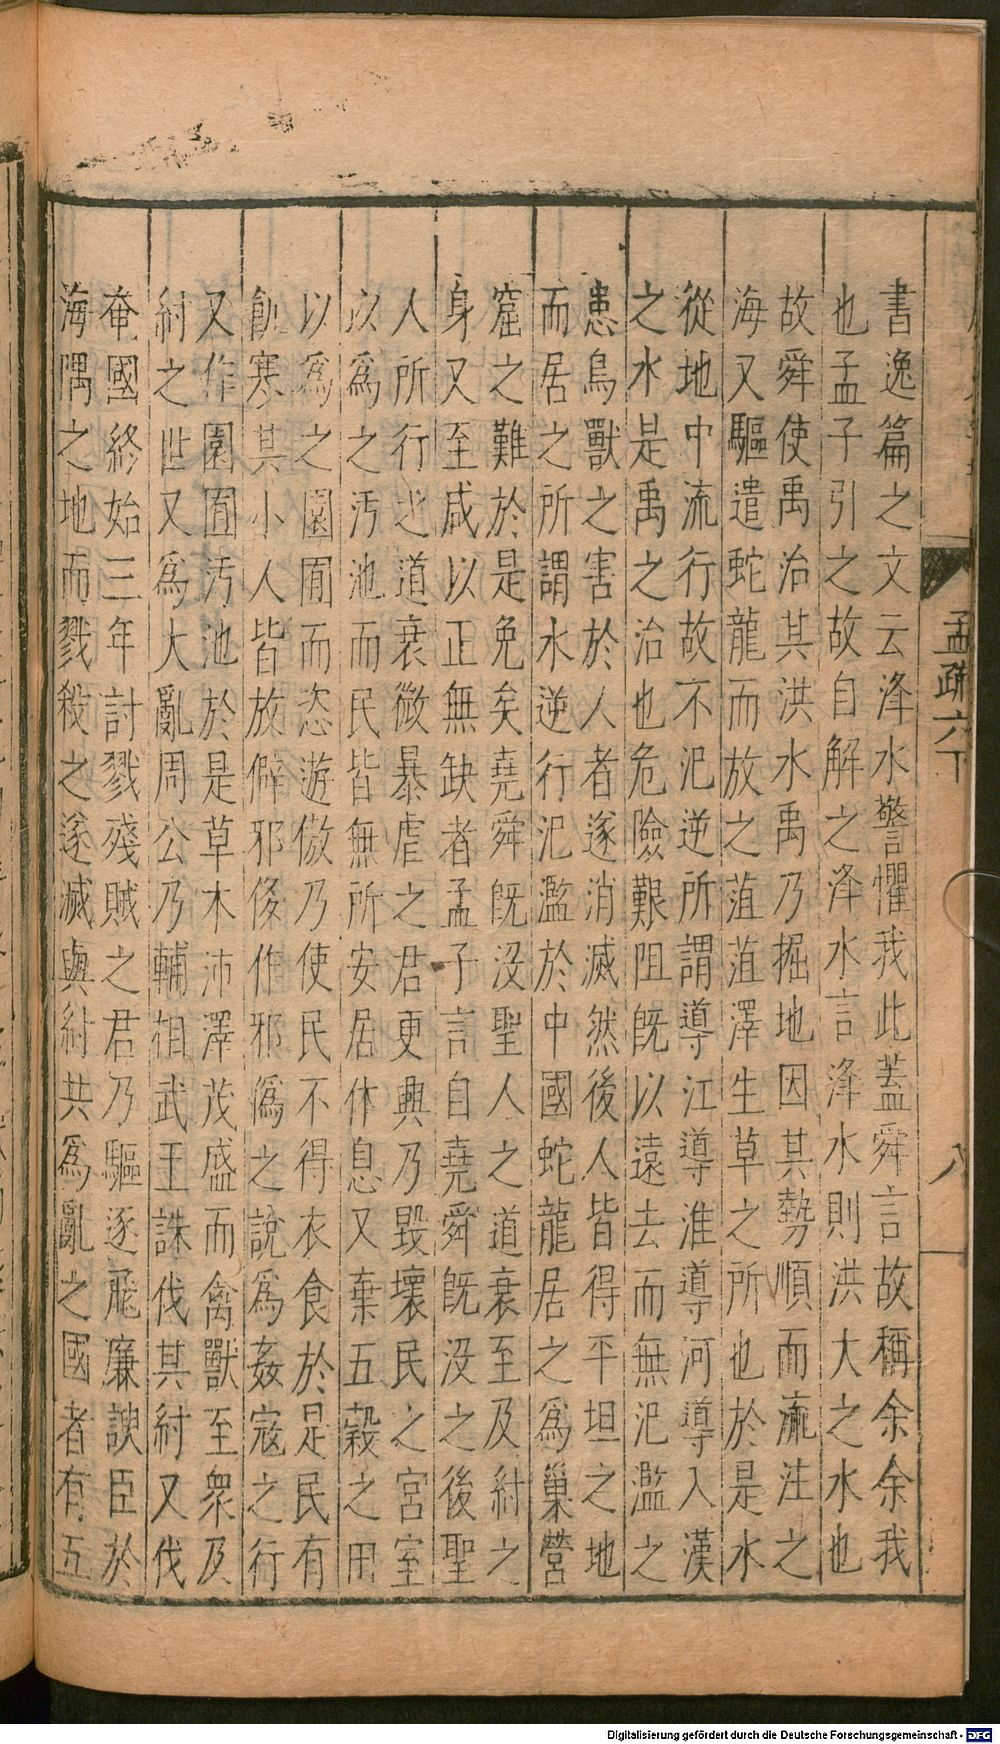 孟疏六下
八
書逸篇之文云洚水警懼我此蓋舜言故稱余余我
也孟子引之故自解之洚水言洚水則洪大之水也
故舜使禹治其洪水禹乃掘地因其勢順而流注之
海又驅遣蛇龍而放之菹菹澤生草之所也於是水
從地中流行故不氾逆所謂導江導淮導河導入漢
之水是禹之治也危險艱阻既以遠去而無氾濫之
患鳥獸之害於人者遂消滅然後人皆得平坦之地
而居之所謂水逆行氾濫於中國蛇龍居之為巢營
窟之難於是免矣堯舜既没聖人之道衰至及紂之
身又至咸以正無缺者孟子言自堯舜既没之後聖
人所行之道衰微暴虐之君更興乃毀壞民之宮室
以為之汚池而民皆無所安居休息又棄五穀之田
以為之園囿而恣遊傲乃使民不得衣食於是民有
飢寒其小人皆放僻邪侈作邪偽之說為姦寇之行
又作園囿汚池於是草木沛澤茂盛而禽獸至衆及
紂之世又為大亂周公乃輔相武王誅伐其紂又伐
奄國終始三年討戮殘賊之君乃驅逐飛廉諛臣於
海隅之地而戮殺之遂滅與紂共為亂之國者有五
Digitalisierung gefördert durch die Deutsche Forschungsgemeinschaft - DFG